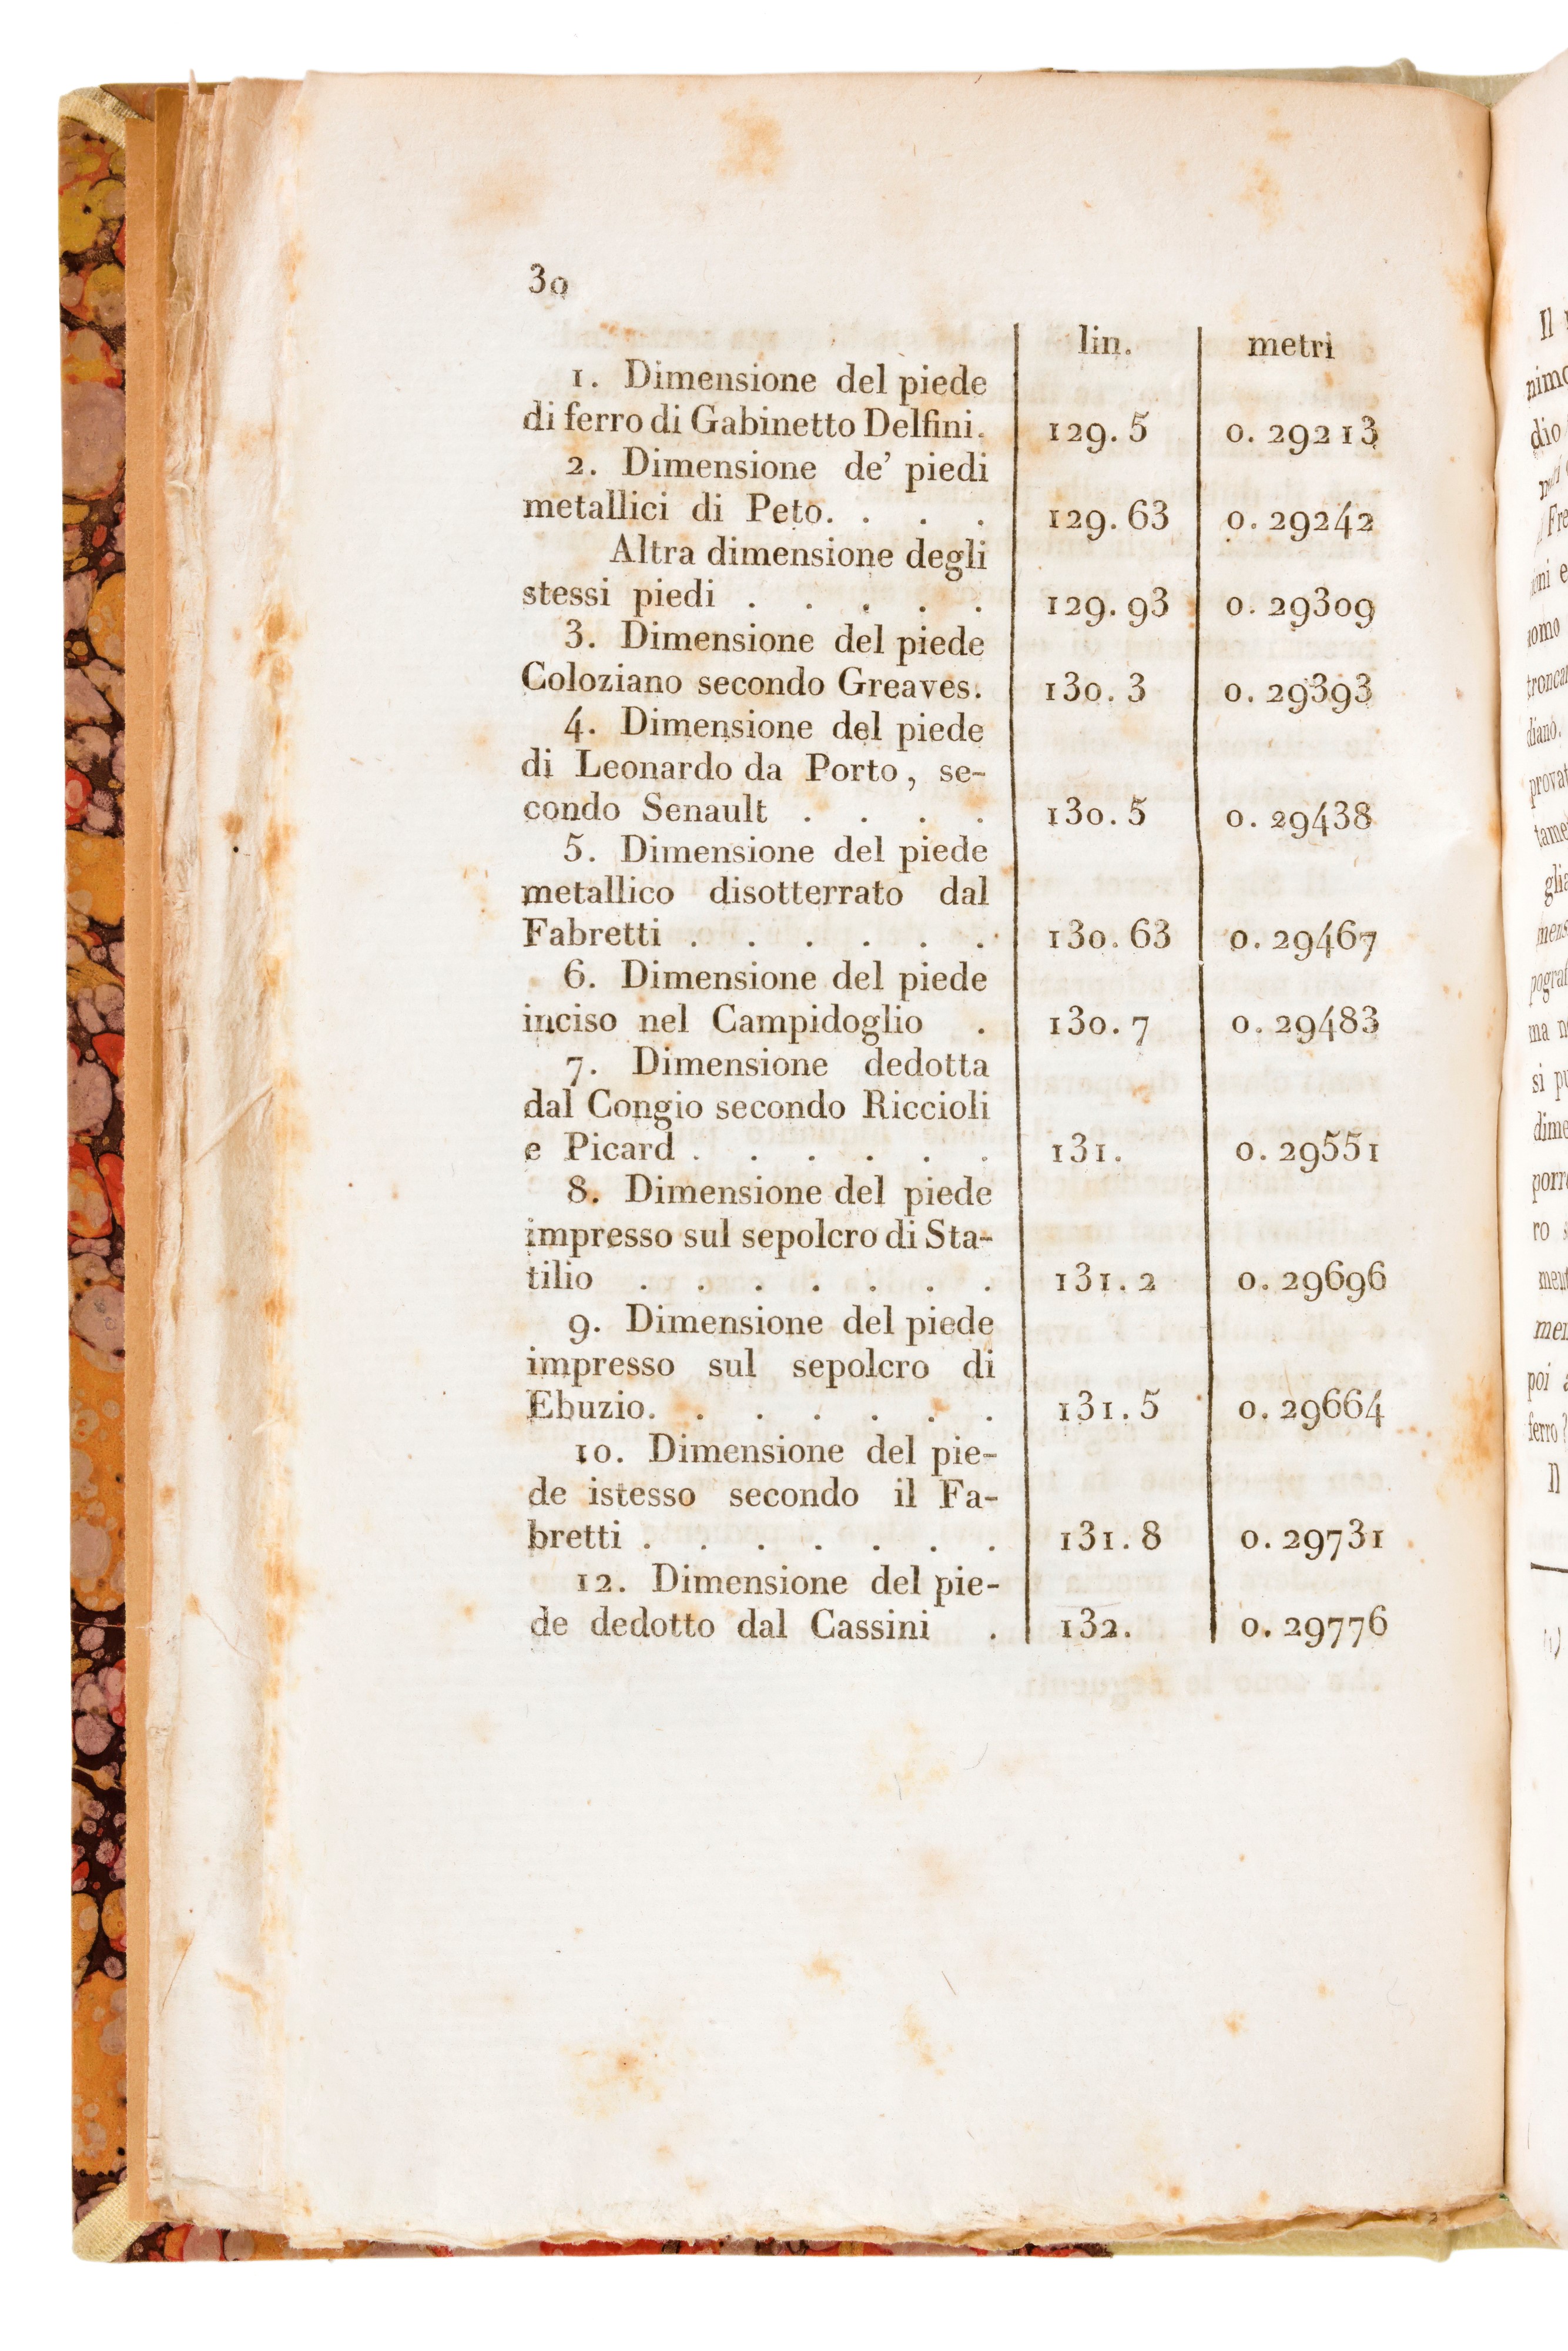 30
lin. metri
1. Dimensione del piede
di ferro di Gabinetto Delfini. 129. 5 0. 29213
2. Dimensione de' piedi
metallici di Peto. . . . 129. 63 0. 29242
Altra dimensione degli
stessi piedi . . . . . 129. 93 0. 29309
3. Dimensione del piede
Coloziano secondo Greaves. 130. 3 0. 29393
4. Dimensione del piede
di Leonardo da Porto, se-
condo Senault . . . . 130. 5 0. 29438
5. Dimensione del piede
metallico disotterrato dal
Fabretti . . . . . . 130. 63 0. 29467
6. Dimensione del piede
inciso nel Campidoglio . 130. 7 0. 29483
7. Dimensione dedotta
dal Congio secondo Riccioli
e Picard . . . . . . 131. 0. 29551
8. Dimensione del piede
impresso sul sepolcro di Sta-
tilio . . . . . . . 131. 2 0. 29696
9. Dimensione del piede
impresso sul sepolcro di
Ebuzio. . . . . . . 131. 5 0. 29664
10. Dimensione del pie-
de istesso secondo il Fa-
bretti . . . . . . . 131. 8 0. 29731
12. Dimensione del pie-
de dedotto dal Cassini . 132. 0. 29776
Il
dio
ma
si
ro
poi
ferro?
Il